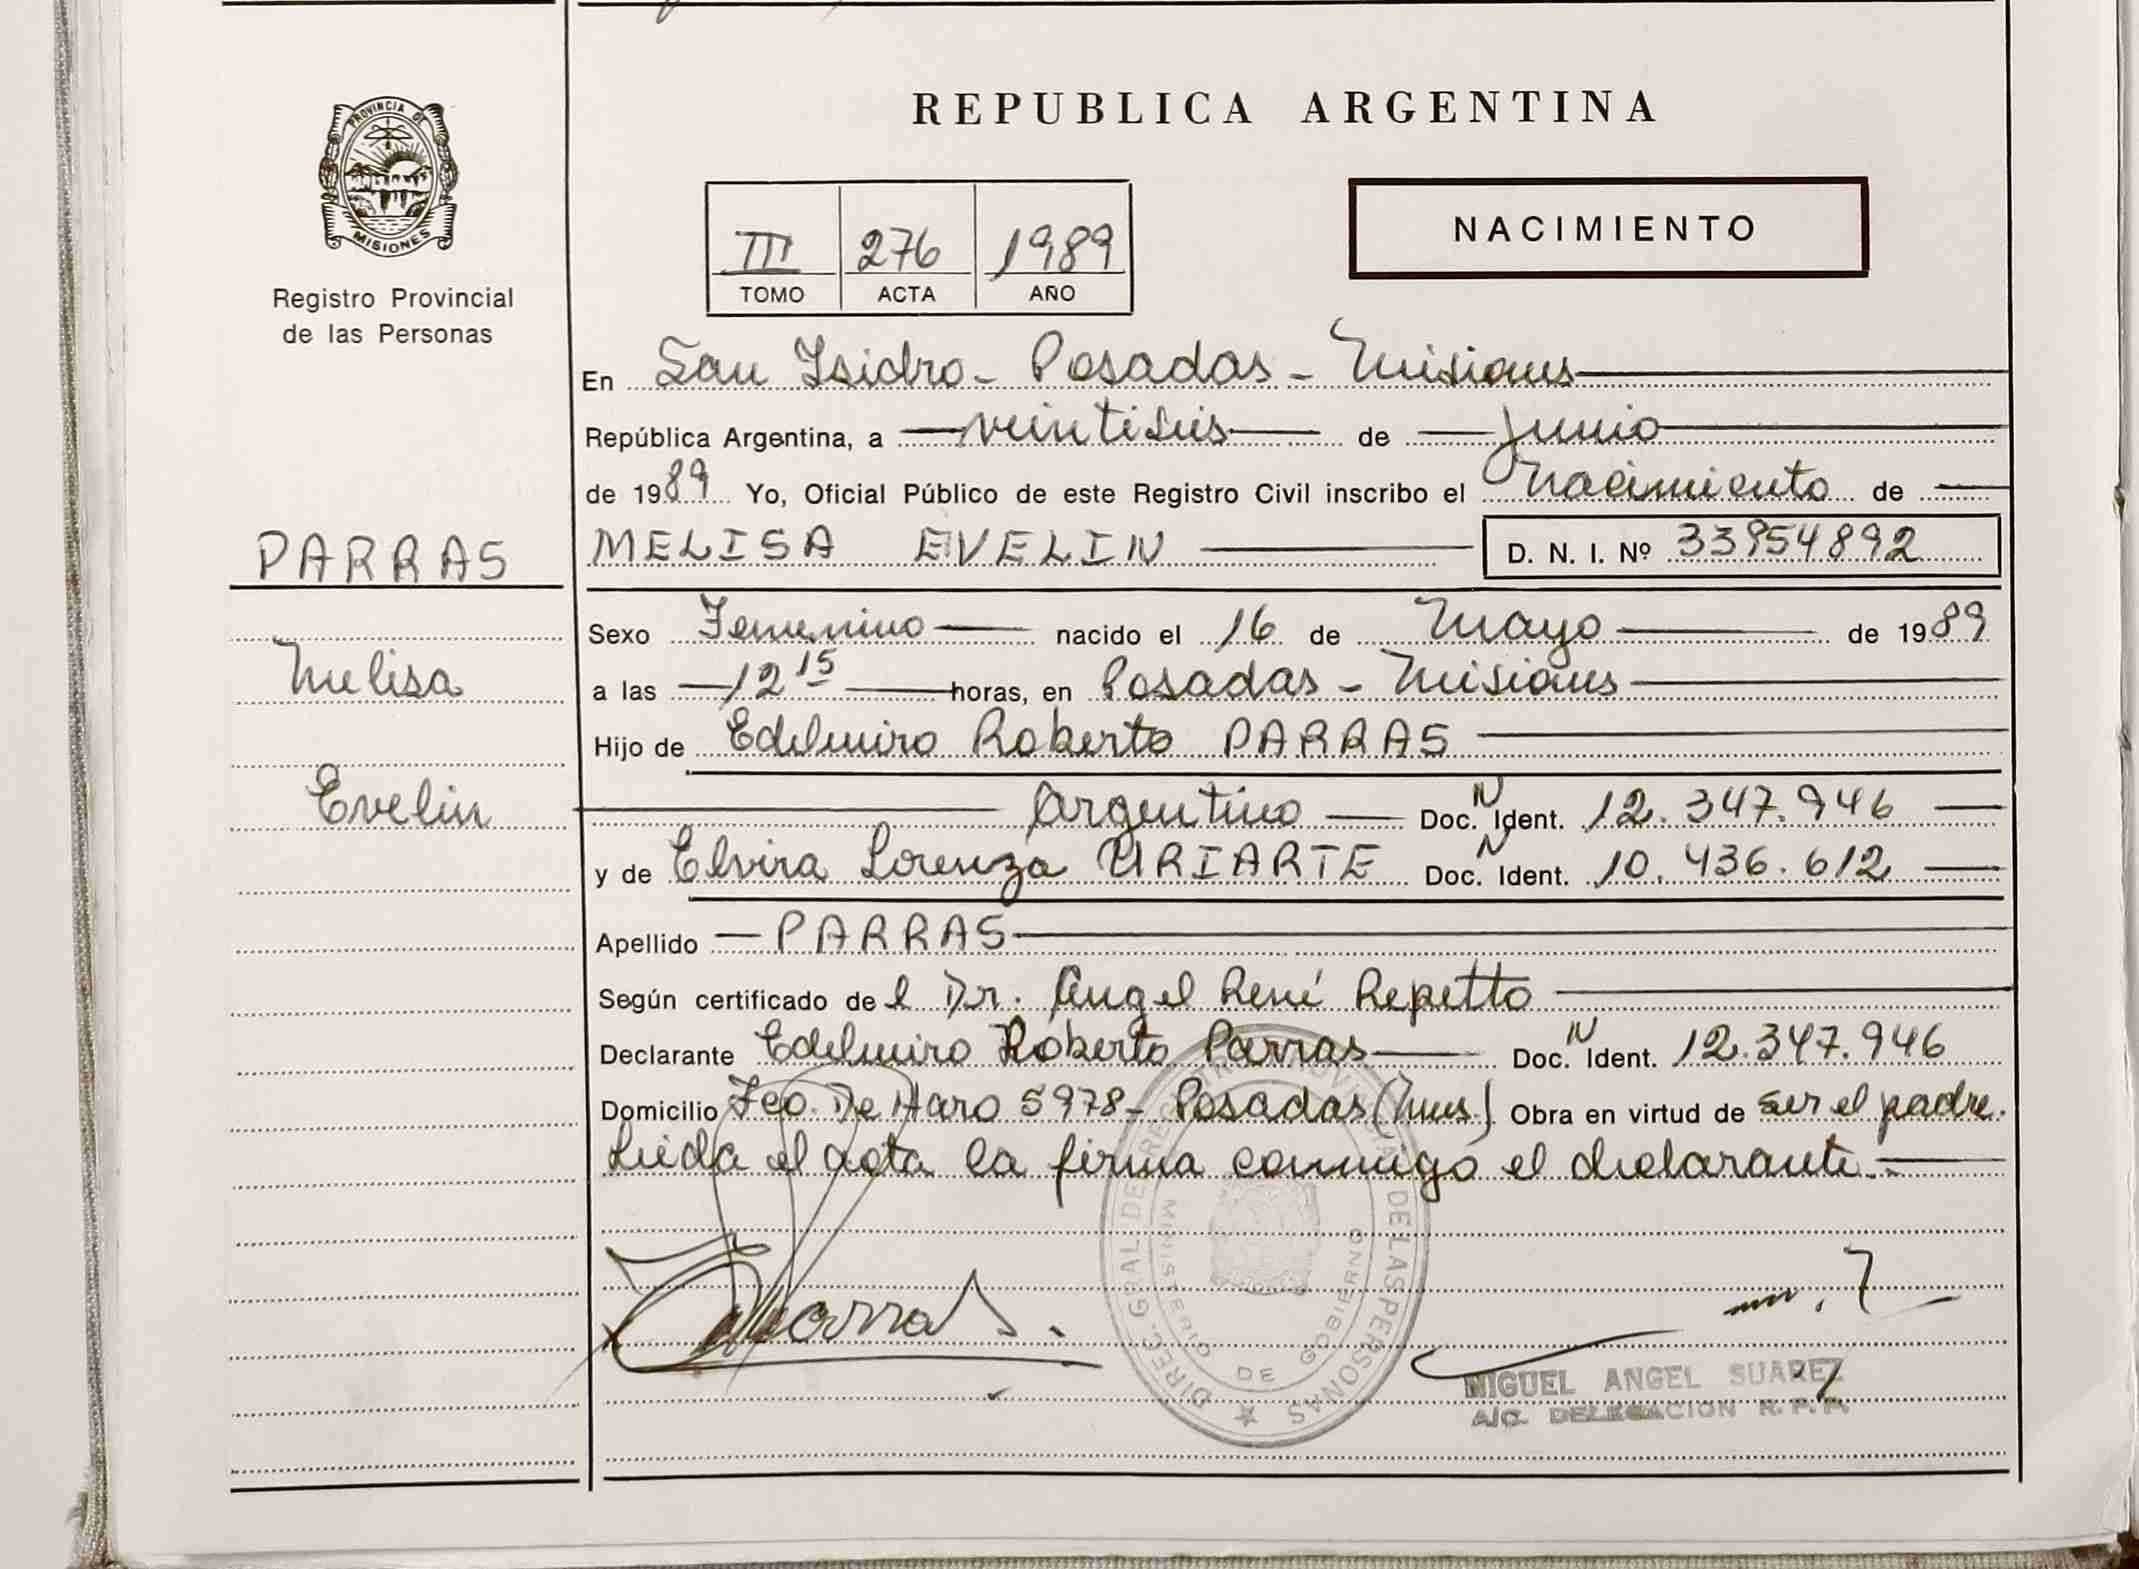 REPUBLICA ARGENTINA
PROVINCIA DE
MISIONES
Registro Provincial
de las Personas
NACIMIENTO
III 276 1989
TOMO ACTA AÑO
En San Isidro - Posadas - Misiones
República Argentina, a veintiseis de Junio
de 1989 Yo, Oficial Público de este Registro Civil inscribo el Nacimiento de
PARRAS MELISA EVELIN D. N. I. Nº 33954892
Sexo Femenino nacido el 16 de Mayo de 1989
Melisa
a las 12 15 horas, en Posadas - Misiones
Hijo de Edelmiro Roberto PARRAS
Evelin
Argentino Doc. N Ident. 12.347.946
y de Elvira Lorenza URIARTE Doc. N Ident. 10.436.612
Apellido PARRAS
Según certificado del Dr. Angel René Repetto
Declarante Edelmiro Roberto Parras Doc. N Ident. 12.347.946
Domicilio Fco. De Haro 5978 - Posadas (Mnes.) Obra en virtud de ser el padre.
Leída el acta la firma conmigo el declarante.
DIREC. GRAL DE REGISTRO PROVINCIAL DE LAS PERSONAS
MINISTERIO DE GOBIERNO
MIGUEL ANGEL SUAREZ
A/C. DELEGACION R. P. P.